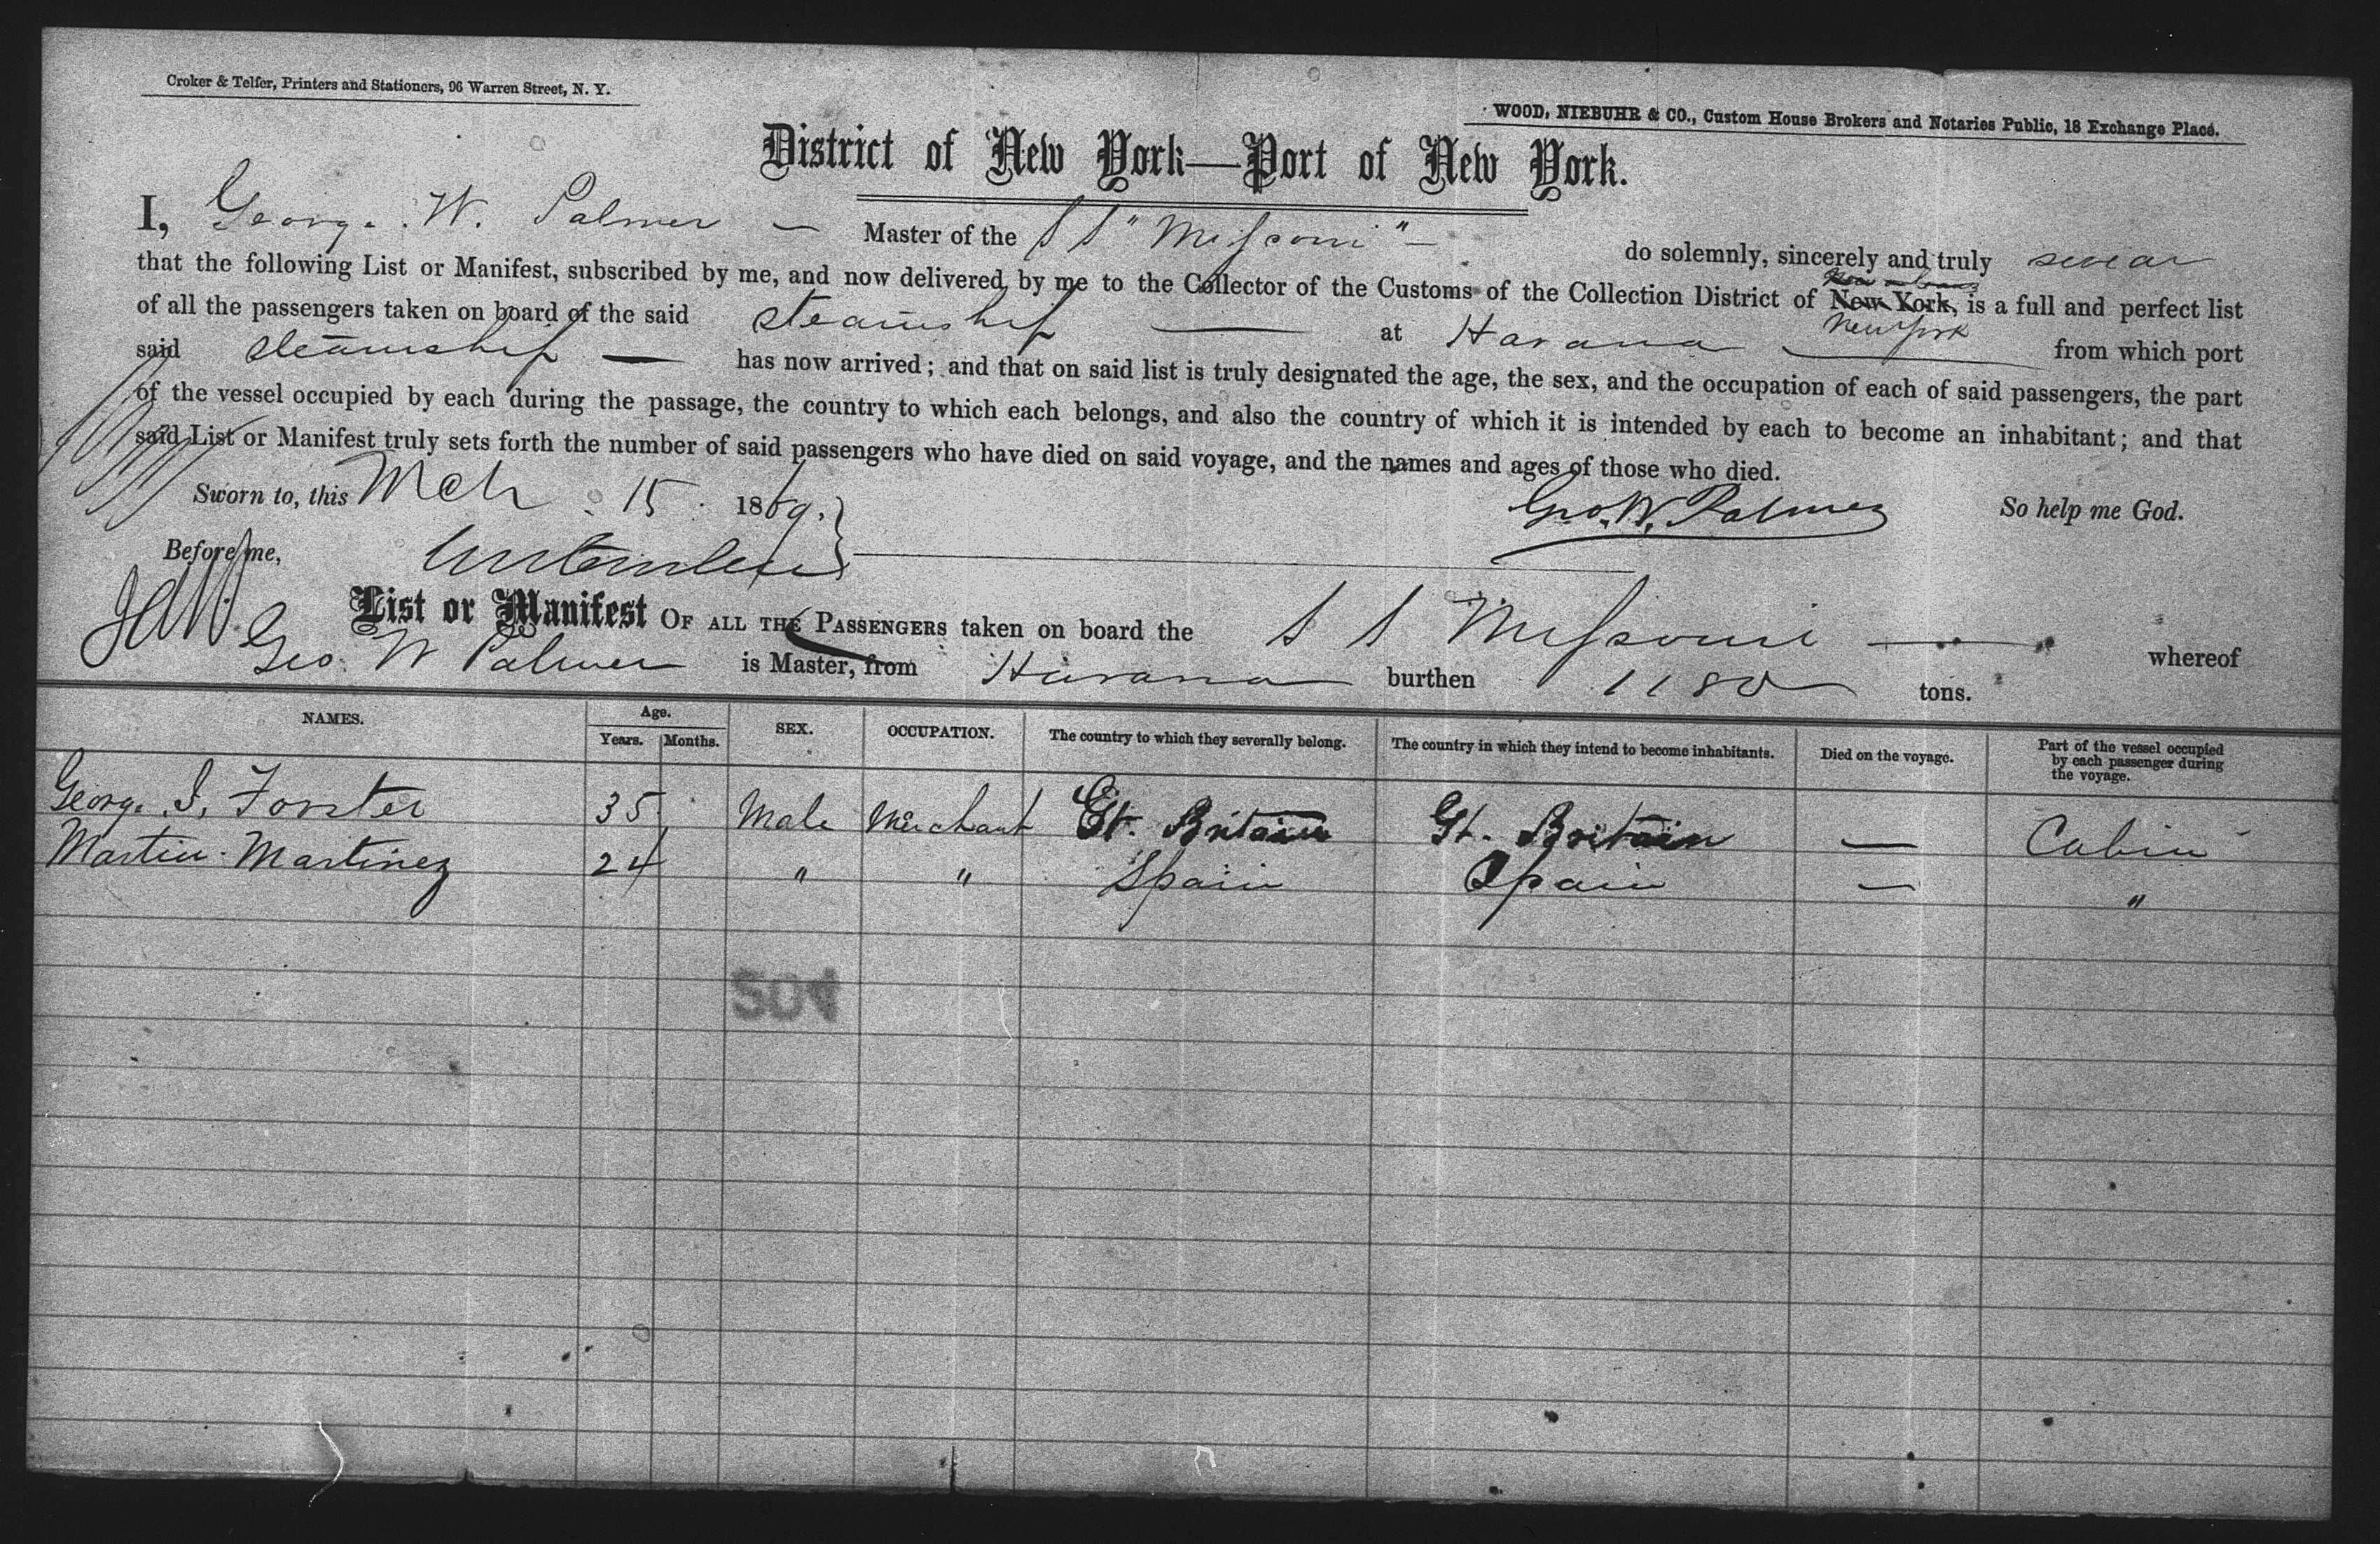 Croker & Telfer, Printers and Stationers, 96 Warren Street, N. Y.
WOOD, NIEBUHR & CO., Custom House Brokers and Notaries Public, 18 Exchange Place.
District of New York—Port of New York.
I, George W. Palmer — Master of the S S "Missouri" — do solemnly, sincerely and truly swear
that the following List or Manifest, subscribed by me, and now delivered by me to the Collector of the Customs of the Collection District of New York, is a full and perfect list
New York
of all the passengers taken on board of the said steamship — at Havana — from which port
said steamship — has now arrived; and that on said list is truly designated the age, the sex, and the occupation of each of said passengers, the part
of the vessel occupied by each during the passage, the country to which each belongs, and also the country of which it is intended by each to become an inhabitant; and that
said List or Manifest truly sets forth the number of said passengers who have died on said voyage, and the names and ages of those who died.
Sworn to, this Mch 15 1869. Geo. W. Palmer So help me God.
Before me,
List or Manifest OF ALL THE PASSENGERS taken on board the S S Missouri — whereof
Geo. W Palmer is Master, from Havana burthen 1180 tons.
NAMES. Age. Years. Months. SEX. OCCUPATION. The country to which they severally belong. The country in which they intend to become inhabitants. Died on the voyage. Part of the vessel occupied by each passenger during the voyage.
George I. Forster 35 Male Merchant Gt. Britain Gt. Britain — Cabin
Martin Martinez 24 " " Spain Spain — "
504